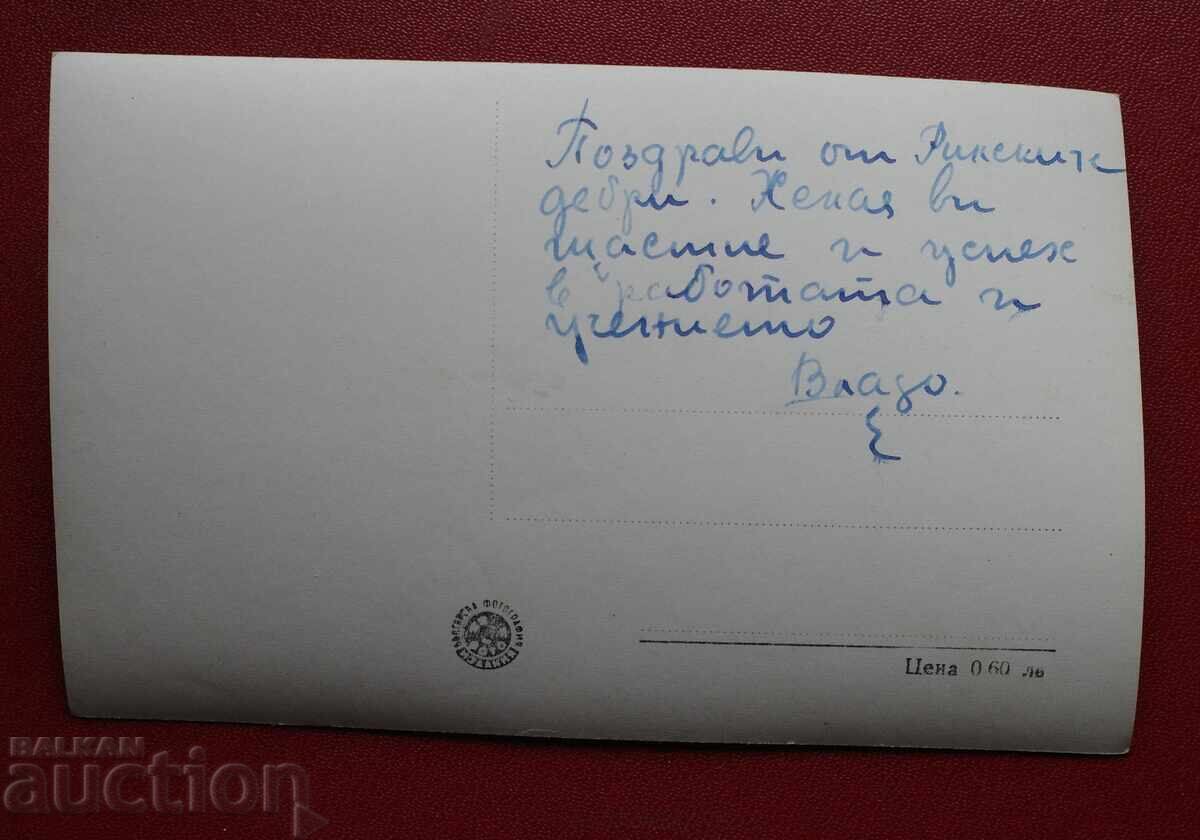 Поздрави от Рилските
дебри. Желая ви
щастие и успех
в работата и
учението
Владо.
БЪЛГАРСКА ФОТОГРАФИЯ
ИЗДАНИЕ
Цена 0.60 лв
BALKAN
auction